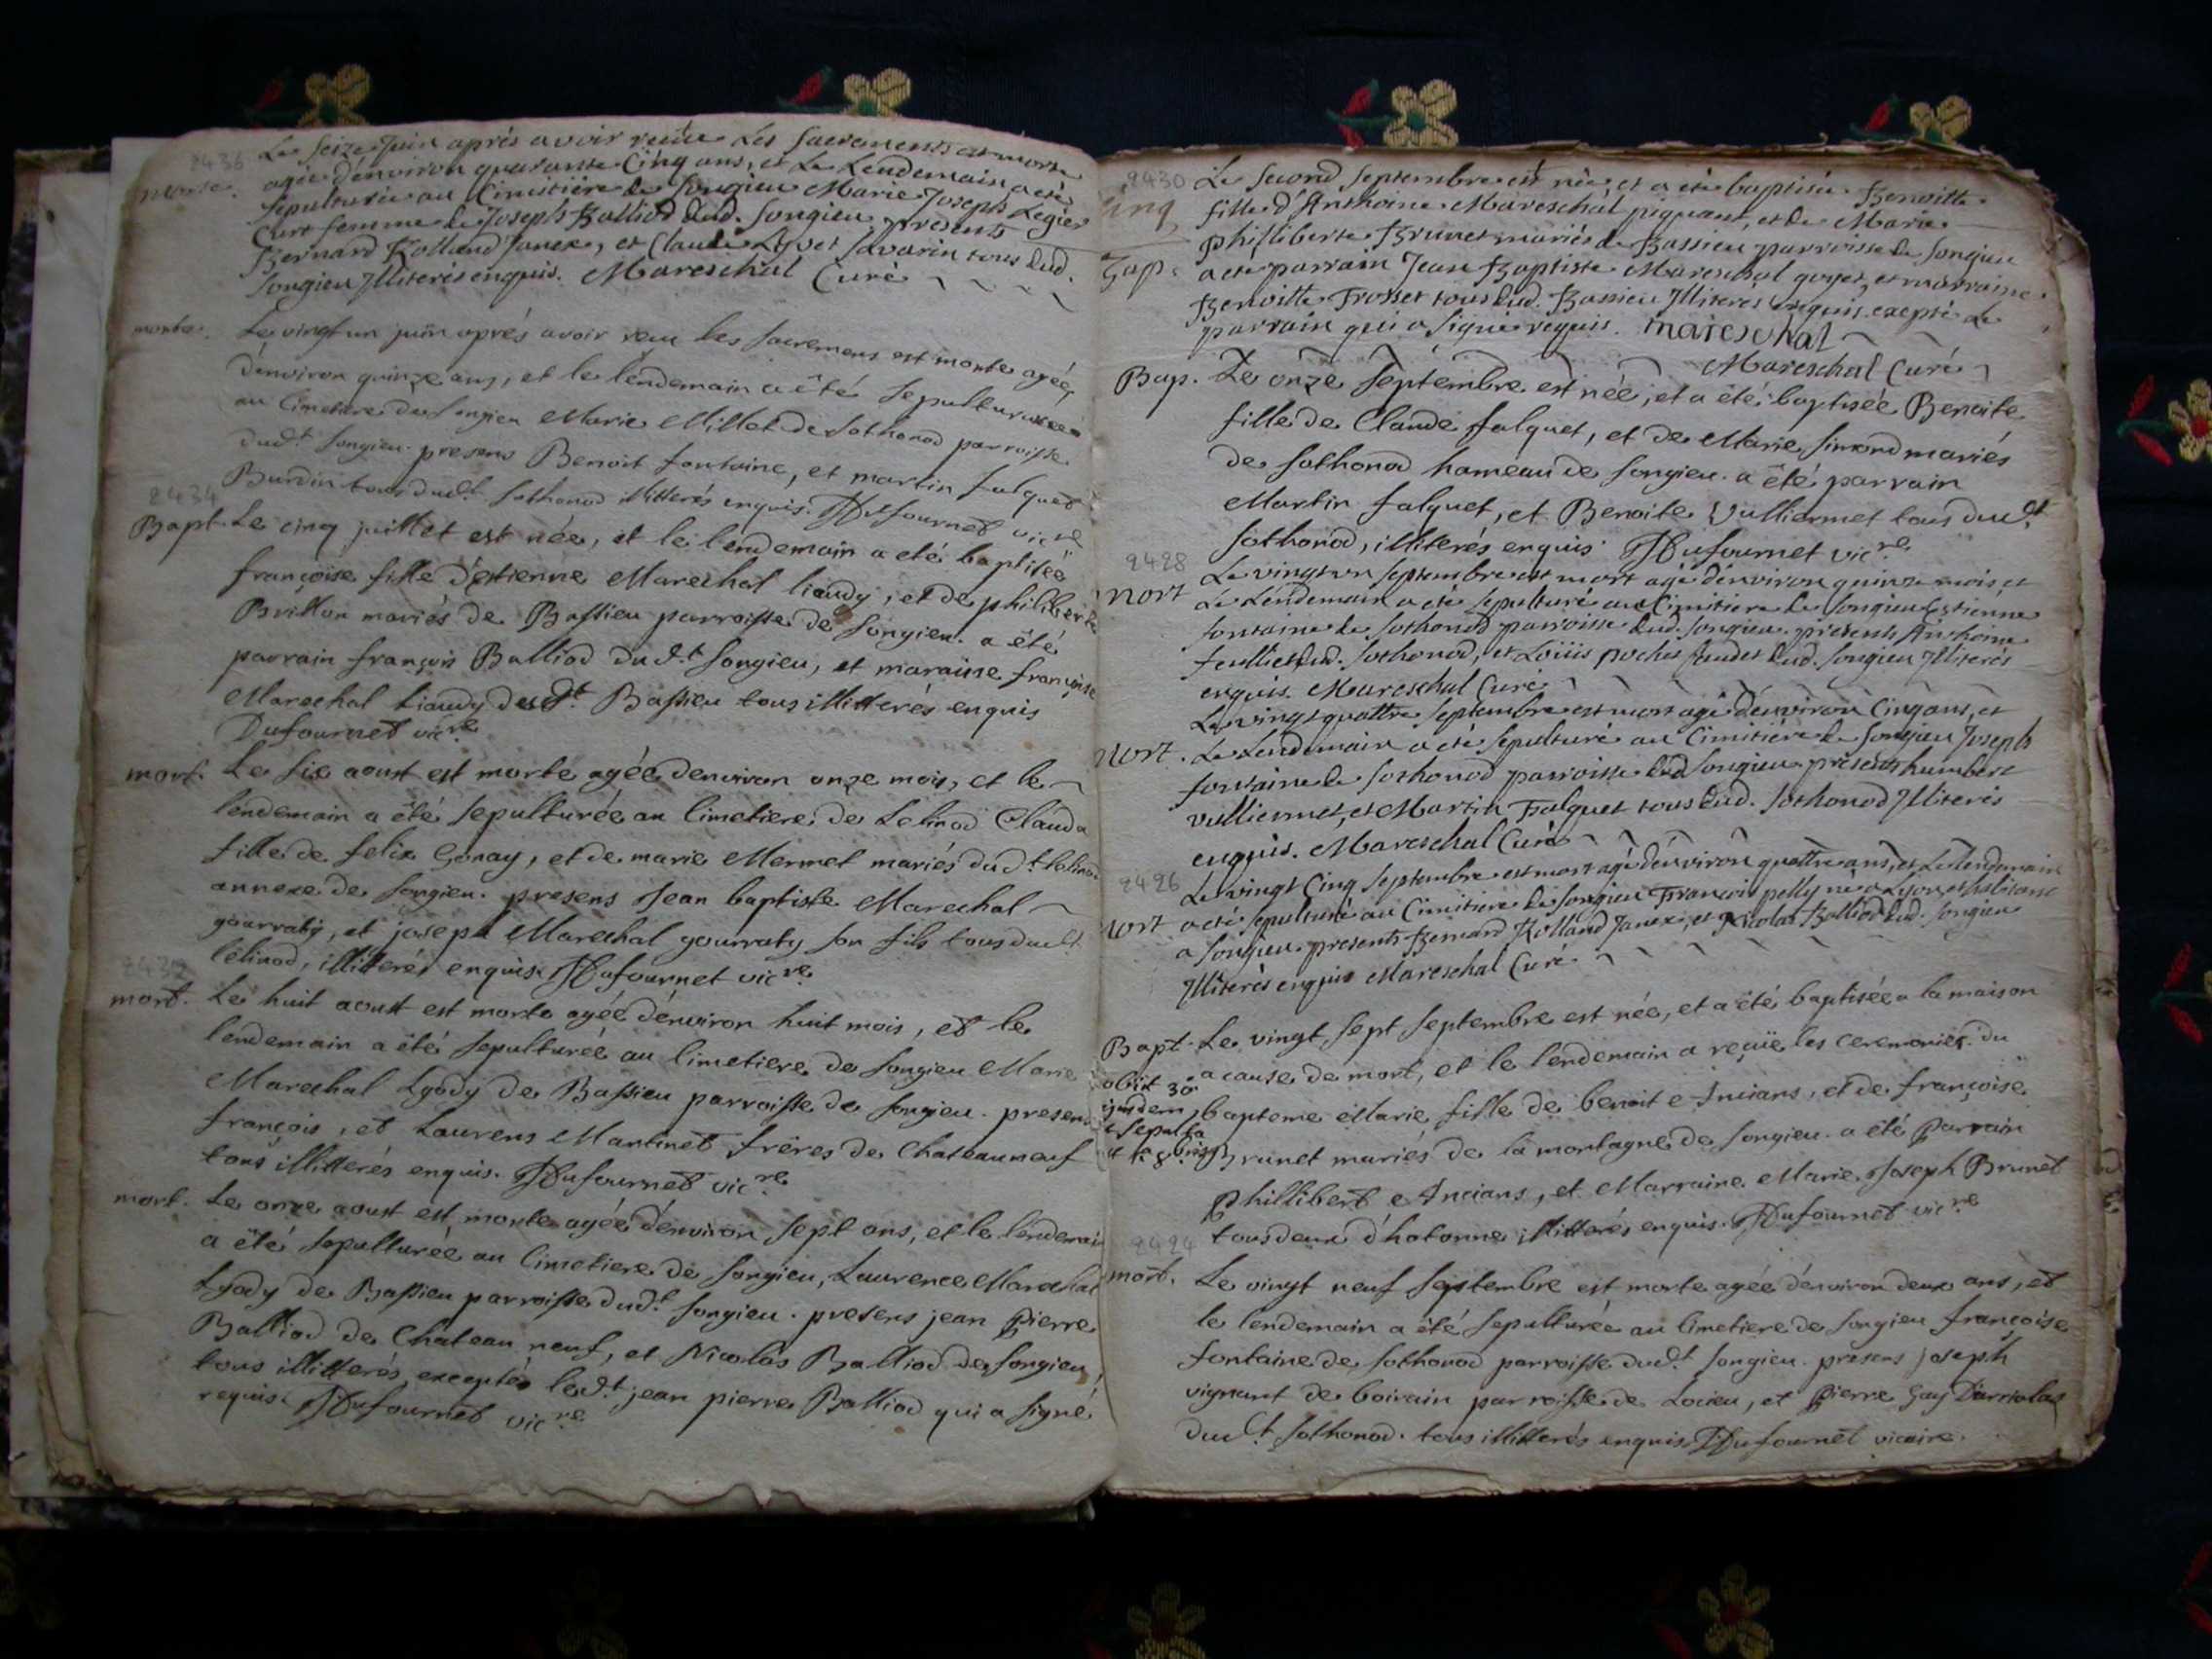 2436 Le seize juin aprés avoir recüe Les sacrements est morte
morte. agée d'environ quarante Cinq ans, et Le Lendemain a eté
sepulturée au Cimitiére de Songieu Marie Joseph Legier
Curt femme de Joseph Balliod dud. Songieu, présents
Bernard Rolland Janex, et Claude Savarin tous dud.
Songieu Illiterés enquis. Mareschal Curé
morte. Le vingt un juin aprés avoir recu les sacremens est morte agée
d'environ quinze ans, et le lendemain a été sepulturée
au Cimetiere de Songieu Marie Millet de Sothonod parroisse
dud.t Songieu. presens Benoit fontaine, et martin falquet
2434 Burdin tous dud.t Sothonod illitterés enquis. Dufournet vic.re
Bapt. Le cinq juillet est née, et le lendemain a eté baptisée
françoise fille d'étienne Marechal liaudy, et de philiberte
Brillon mariés de Bassieu parroisse de Songieu. a été
parrain françois Balliod dud.t Songieu, et maraine françoise
Marechal Liaudy dud.t Bassieu tous illitterés enquis
Dufournet vic.re
mort. Le six aoust est morte agée denviron onze mois, et le
lendemain a été sepulturée au Cimetiere de Lelinod Clauda
fille de felix Gonay, et de marie Mermet mariés dud.t Lelinod
annexe de Songieu. presens Jean baptiste Marechal
gourraty, et joseph Marechal gourraty son fils tous dud.t
2432 lelinod, illitterés enquis. Dufournet vic.re
mort. Le huit aoust est morte agée d'environ huit mois, et le
lendemain a été sepulturée au Cimetiere de Songieu Marie
Marechal Lyody de Bassieu parroisse de Songieu. presens
françois, et Laurens Martinet fréres de Chateauneuf
tous illitterés enquis. Dufournet vic.re
mort. Le onze aoust est morte agée d'environ sept ans, et le lendemain
a été sepulturée au Cimetiere de Songieu, Laurence Marechal
Lyody de Bassieu parroisse dud.t Songieu. presens jean Pierre
Balliod de Chateau neuf, et Nicolas Balliod de Songieu,
tous illitterés exceptés led.t jean pierre Balliod qui a signé
requis. Dufournet vic.re
2430 Le second septembre est née et a eté baptisée Benoitte
fille d'Anthoine Mareschal piquant, et de Marie
Philliberte Brunet mariés de Bassieu parroisse de Songieu
Bap. a eté parrain Jean Baptiste Mareschal goyet, et marraine
Benoitte Trosset tous dud. Bassieu Illiterés enquis. exepté Le
parrain qui a signé requis. mareschal
Mareschal Curé
Bap. Le onze septembre est née, et a été baptisée Benoite
fille de Claude falquet, et de Marie simond mariés
de Sothonod haméau de Songieu. a été parrain
Martin falquet, et Benoite Vulliermet tous dud.t
Sothonod, illiterés enquis. Dufournet vic.re
2428 Le vingt un septembre est mort agé d'environ quinze mois et
mort Le Lendemain a eté sepulturé au Cimitiere de Songieu Estienne
fontaine de Sothonod parroisse dud. Songieu. présents Anthoine
feulliet dud. Sothonod, et Loüis pochet dud. Songieu Illiterés
enquis. Mareschal Curé
Le vingt quattre septembre est mort agé d'environ Cinq ans, et
mort. Le Lendemain a eté sepulturé au Cimitiére de Songieu Joseph
fontaine de Sothonod parroisse dud Songieu presents humbert
vulliermet, et Martin Falquet tous dud. Sothonod Illiterés
enquis. Mareschal Curé
2426 Le vingt Cinq septembre est mort agé d'environ quattre ans, et Le lendemain
mort a eté sepulturé au Cimitiere de Songieu François pelly né a Lyon, et habitant
a Songieu. presents Bernard Rolland Janex, et Nicolas Balliod dud. Songieu
Illiterés enquis Mareschal Curé
Bapt. Le vingt sept septembre est née, et a été baptisée a la maison
obiit 30a a cause de mort, et le lendemain a reçüe les ceremonies du
ejusdem bapteme Marie fille de benoit Ancians, et de françoise
et sepulta Brunet mariés de la montagne de Songieu. a été Parrain
Phillibert Ancians, et Marraine Marie Joseph Brunet
2424 tous deux d'hotonne illitterés enquis. Dufournet vic.re
mort. Le vingt neuf septembre est morte agée d'environ deux ans, et
le lendemain a été sepulturée au Cimetiere de Songieu françoise
fontaine de Sothonod parroisse dud.t Songieu. presens joseph
vignant de boirain parroisse de Locieu, et Pierre Gay
dud.t Sothonod. tous illitterés enquis Dufournet vicaire.